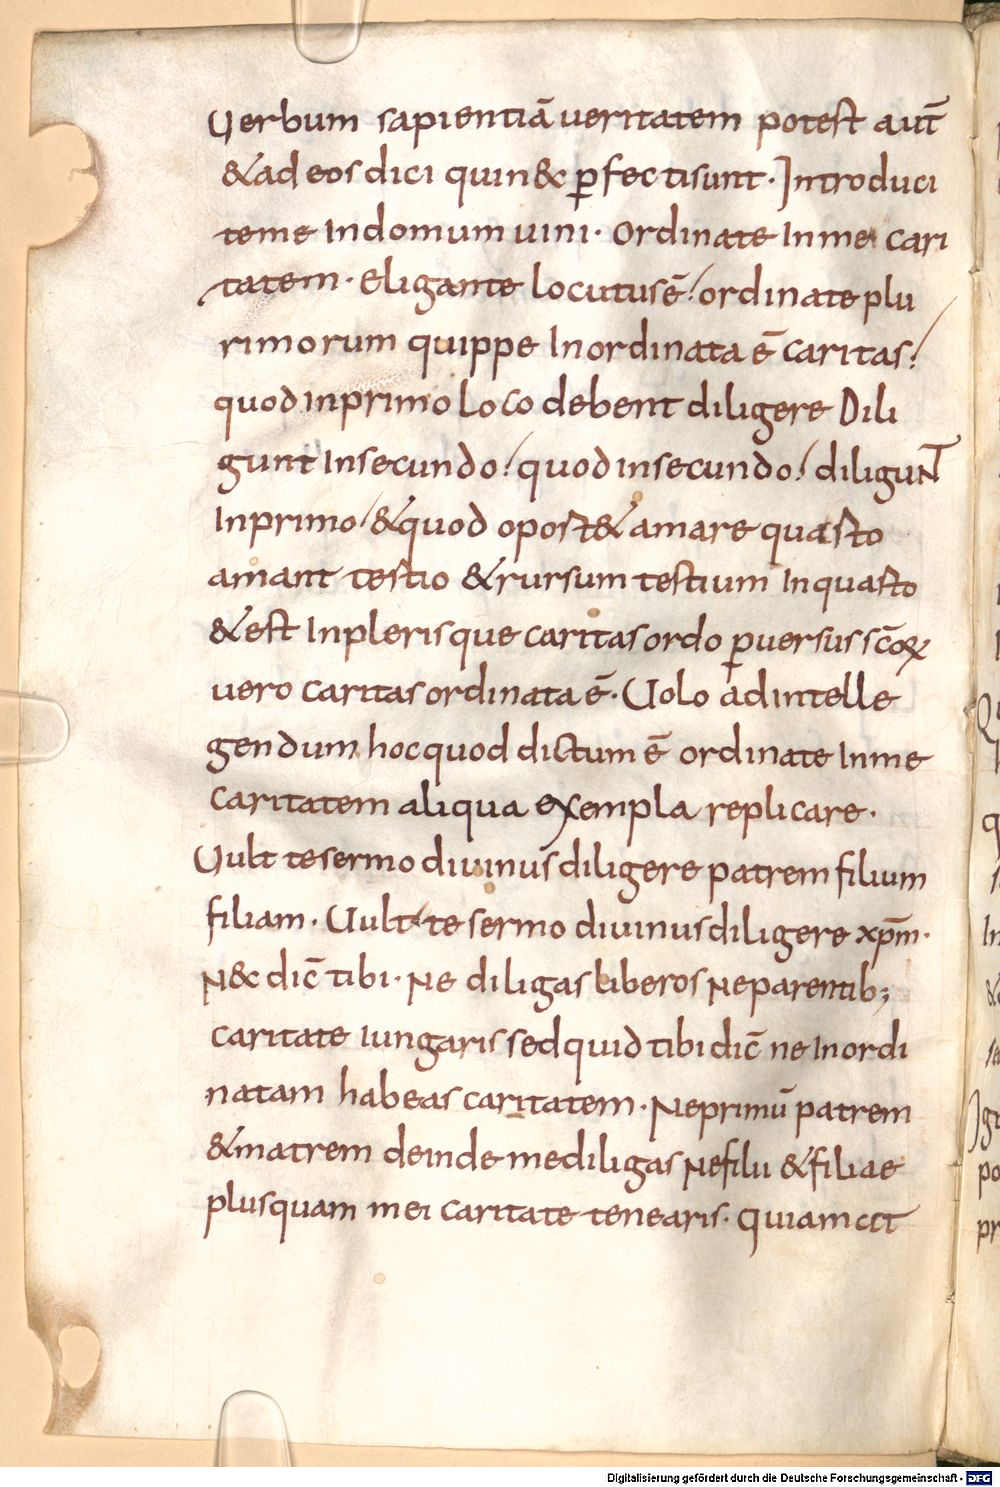 Uerbum sapientiā ueritatem potest aut̄
&ad eos dici quin& ꝑfectisunt· Introduci
teme Indomum uini· Ordinate Inme cari
tatem· Eligante locutusē· ordinate plu
rimorum quippe Inordinata ē caritas·
quod inprimo loco debent diligere Dili
gunt Insecundo· quod insecundo· diligunt
Inprimo &quod oport& amare quarto
amant tertio &rursum tertium Inquarto
&est Inplerisque caritas ordo ꝑuersus scōꝝ
uero caritas ordinata ē· Uolo adintelle
gendum hocquod dictum ē ordinate Inme
caritatem aliqua exempla replicare·
Uult tesermo diuinus diligere patrem filium
filiam· Uult te sermo diuinus diligere xp̄m·
N& dic̄ tibi· Ne diligas liberos Neparentib;
caritate Iungaris sed quid tibi dic̄ ne Inordi
natam habeas caritatem· Neprimū patrem
&matrem deinde mediligas Nefilii &filiae
plusquam mei caritate tenearis· quiamat
Digitalisierung gefördert durch die Deutsche Forschungsgemeinschaft - DFG